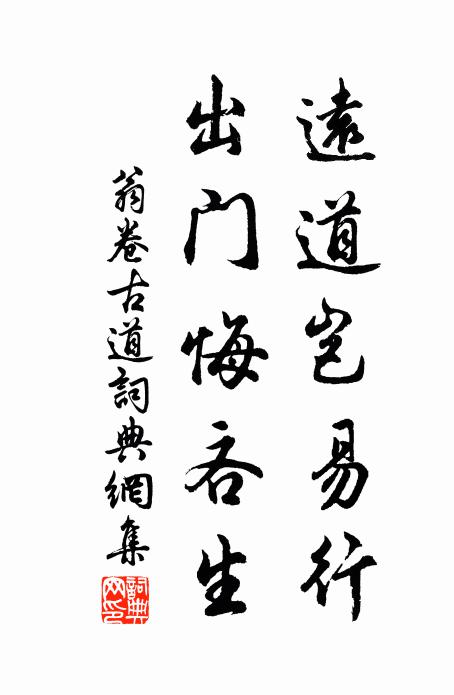 遠道豈易行
出门悔吝生
翁卷古道詞典網集
詞典网印